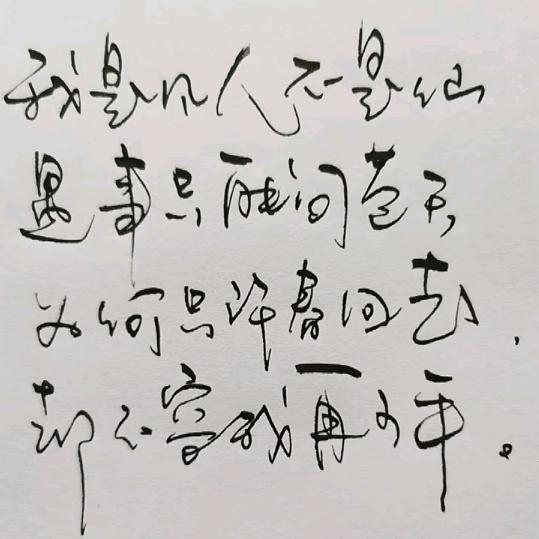 我是凡人不是仙
遇事只能问苍天
为何只许春回去，
却不容我再少年。